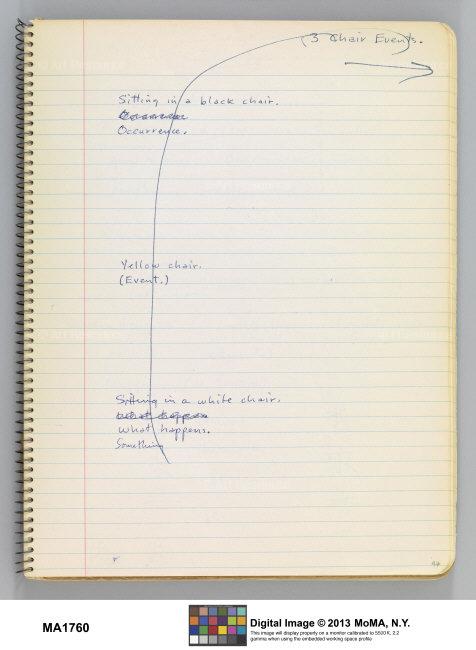 (3 Chair Events.)
Sitting in a black chair.
Occurrence.
Yellow chair.
(Event.)
Sitting in a white chair.
what happens.
Something
MA1760
Digital Image © 2013 MoMA, N.Y.
This image will display properly on a monitor calibrated to 5500 K, 2.2
gamma when using the embedded working space profile